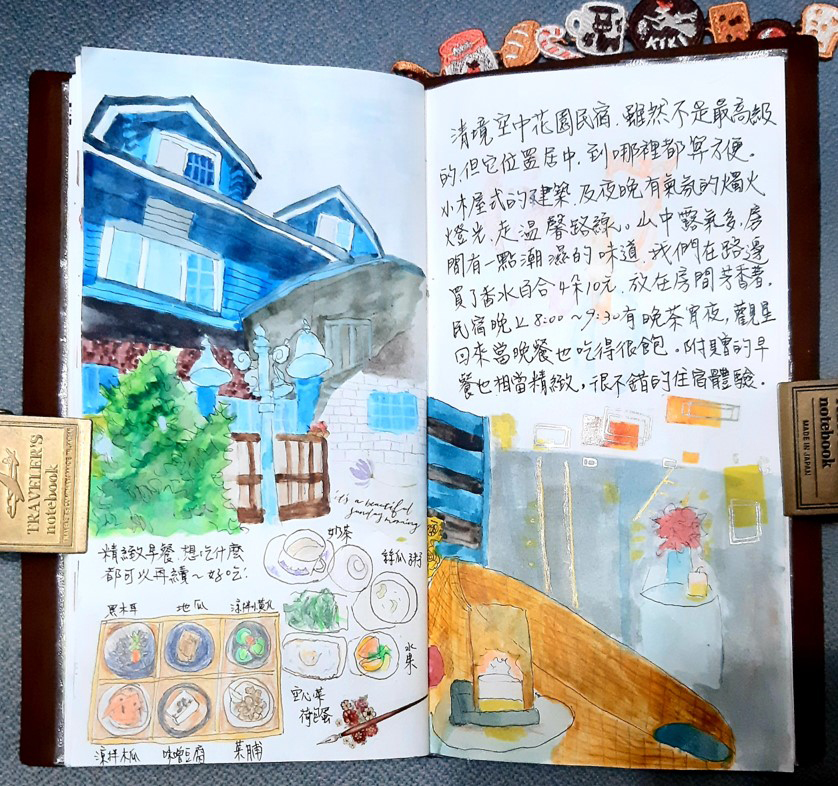 KIKI
TRAVELER'S
notebook
it's a beautiful
sunday morning
精緻早餐,想吃什麼
都可以再續~好吃!
奶茶
絲瓜粥
黑木耳
地瓜
涼拌黃瓜
水果
空心菜
荷包蛋
涼拌木瓜
味噌豆腐
菜脯
清境空中花園民宿,雖然不是最高級
的,但它位置居中,到哪裡都算方便。
小木屋式的建築,及夜晚有氣氛的燭火
燈光,走溫馨路線。山中露氣多,房
間有一點潮濕的味道,我們在路邊
買了香水百合4朵10元,放在房間芳香著。
民宿晚上8:00~9:30有晚茶宵夜,觀星
回來當晚餐也吃得很飽。附贈的早
餐也相當精緻,很不錯的住宿體驗。
notebook
MADE IN JAPAN